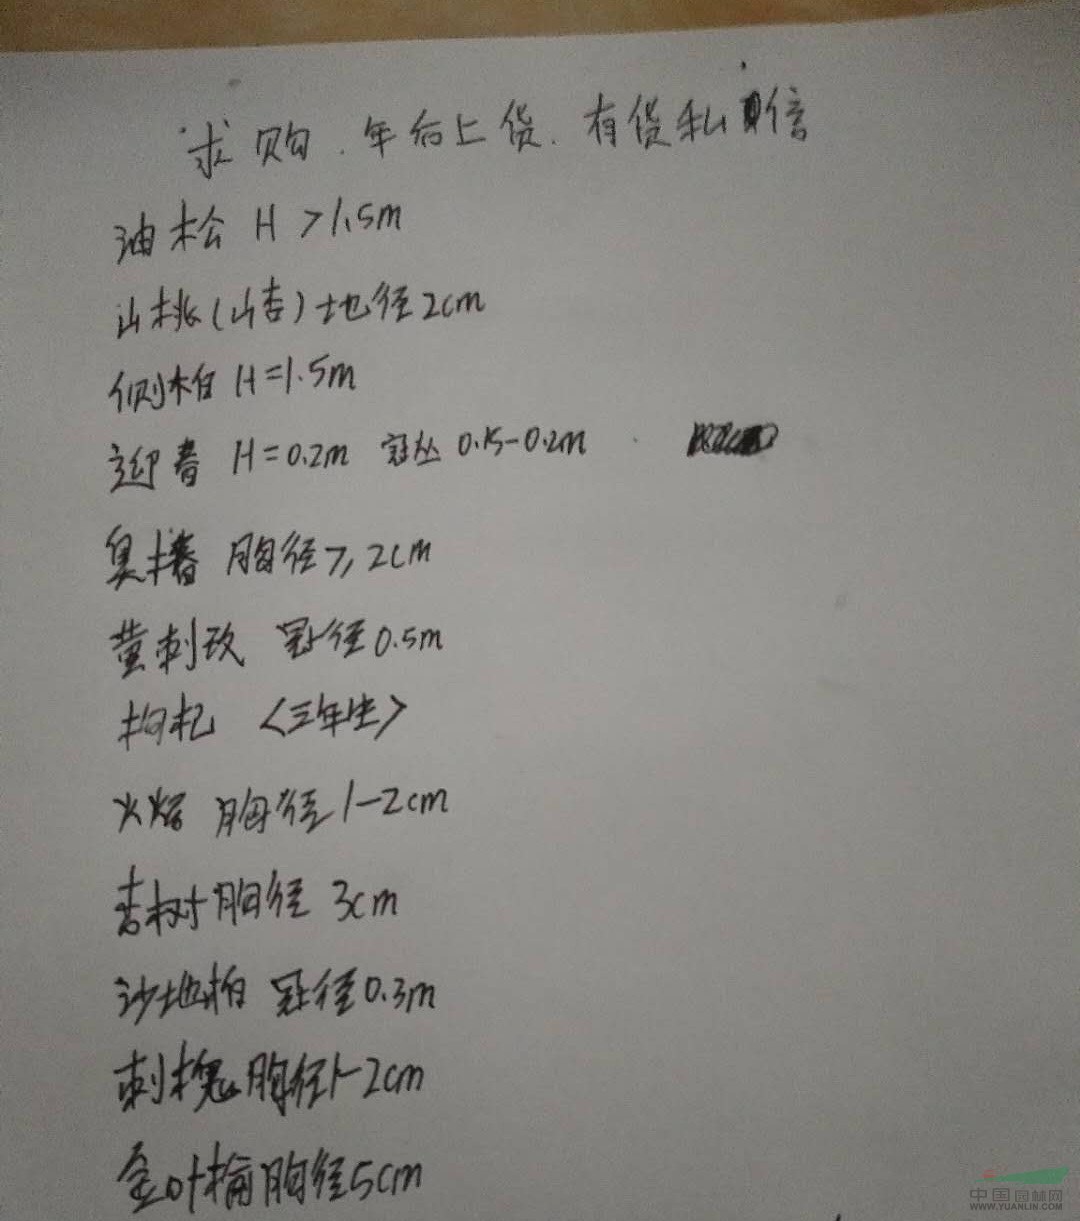 求购.年后上货.有货私信
油松 H >1.5m
山桃(山杏)地径2cm
侧柏 H=1.5m
迎春 H=0.2m 冠丛 0.15-0.2m
臭椿 胸径≥2cm
黄刺玫 冠径0.5m
枸杞 <三年生>
火炬 胸径1-2cm
杏树胸径 3cm
沙地柏 冠径0.3m
刺槐胸径1-2cm
金叶榆胸径5cm
中国园林网
WWW.YUANLIN.COM